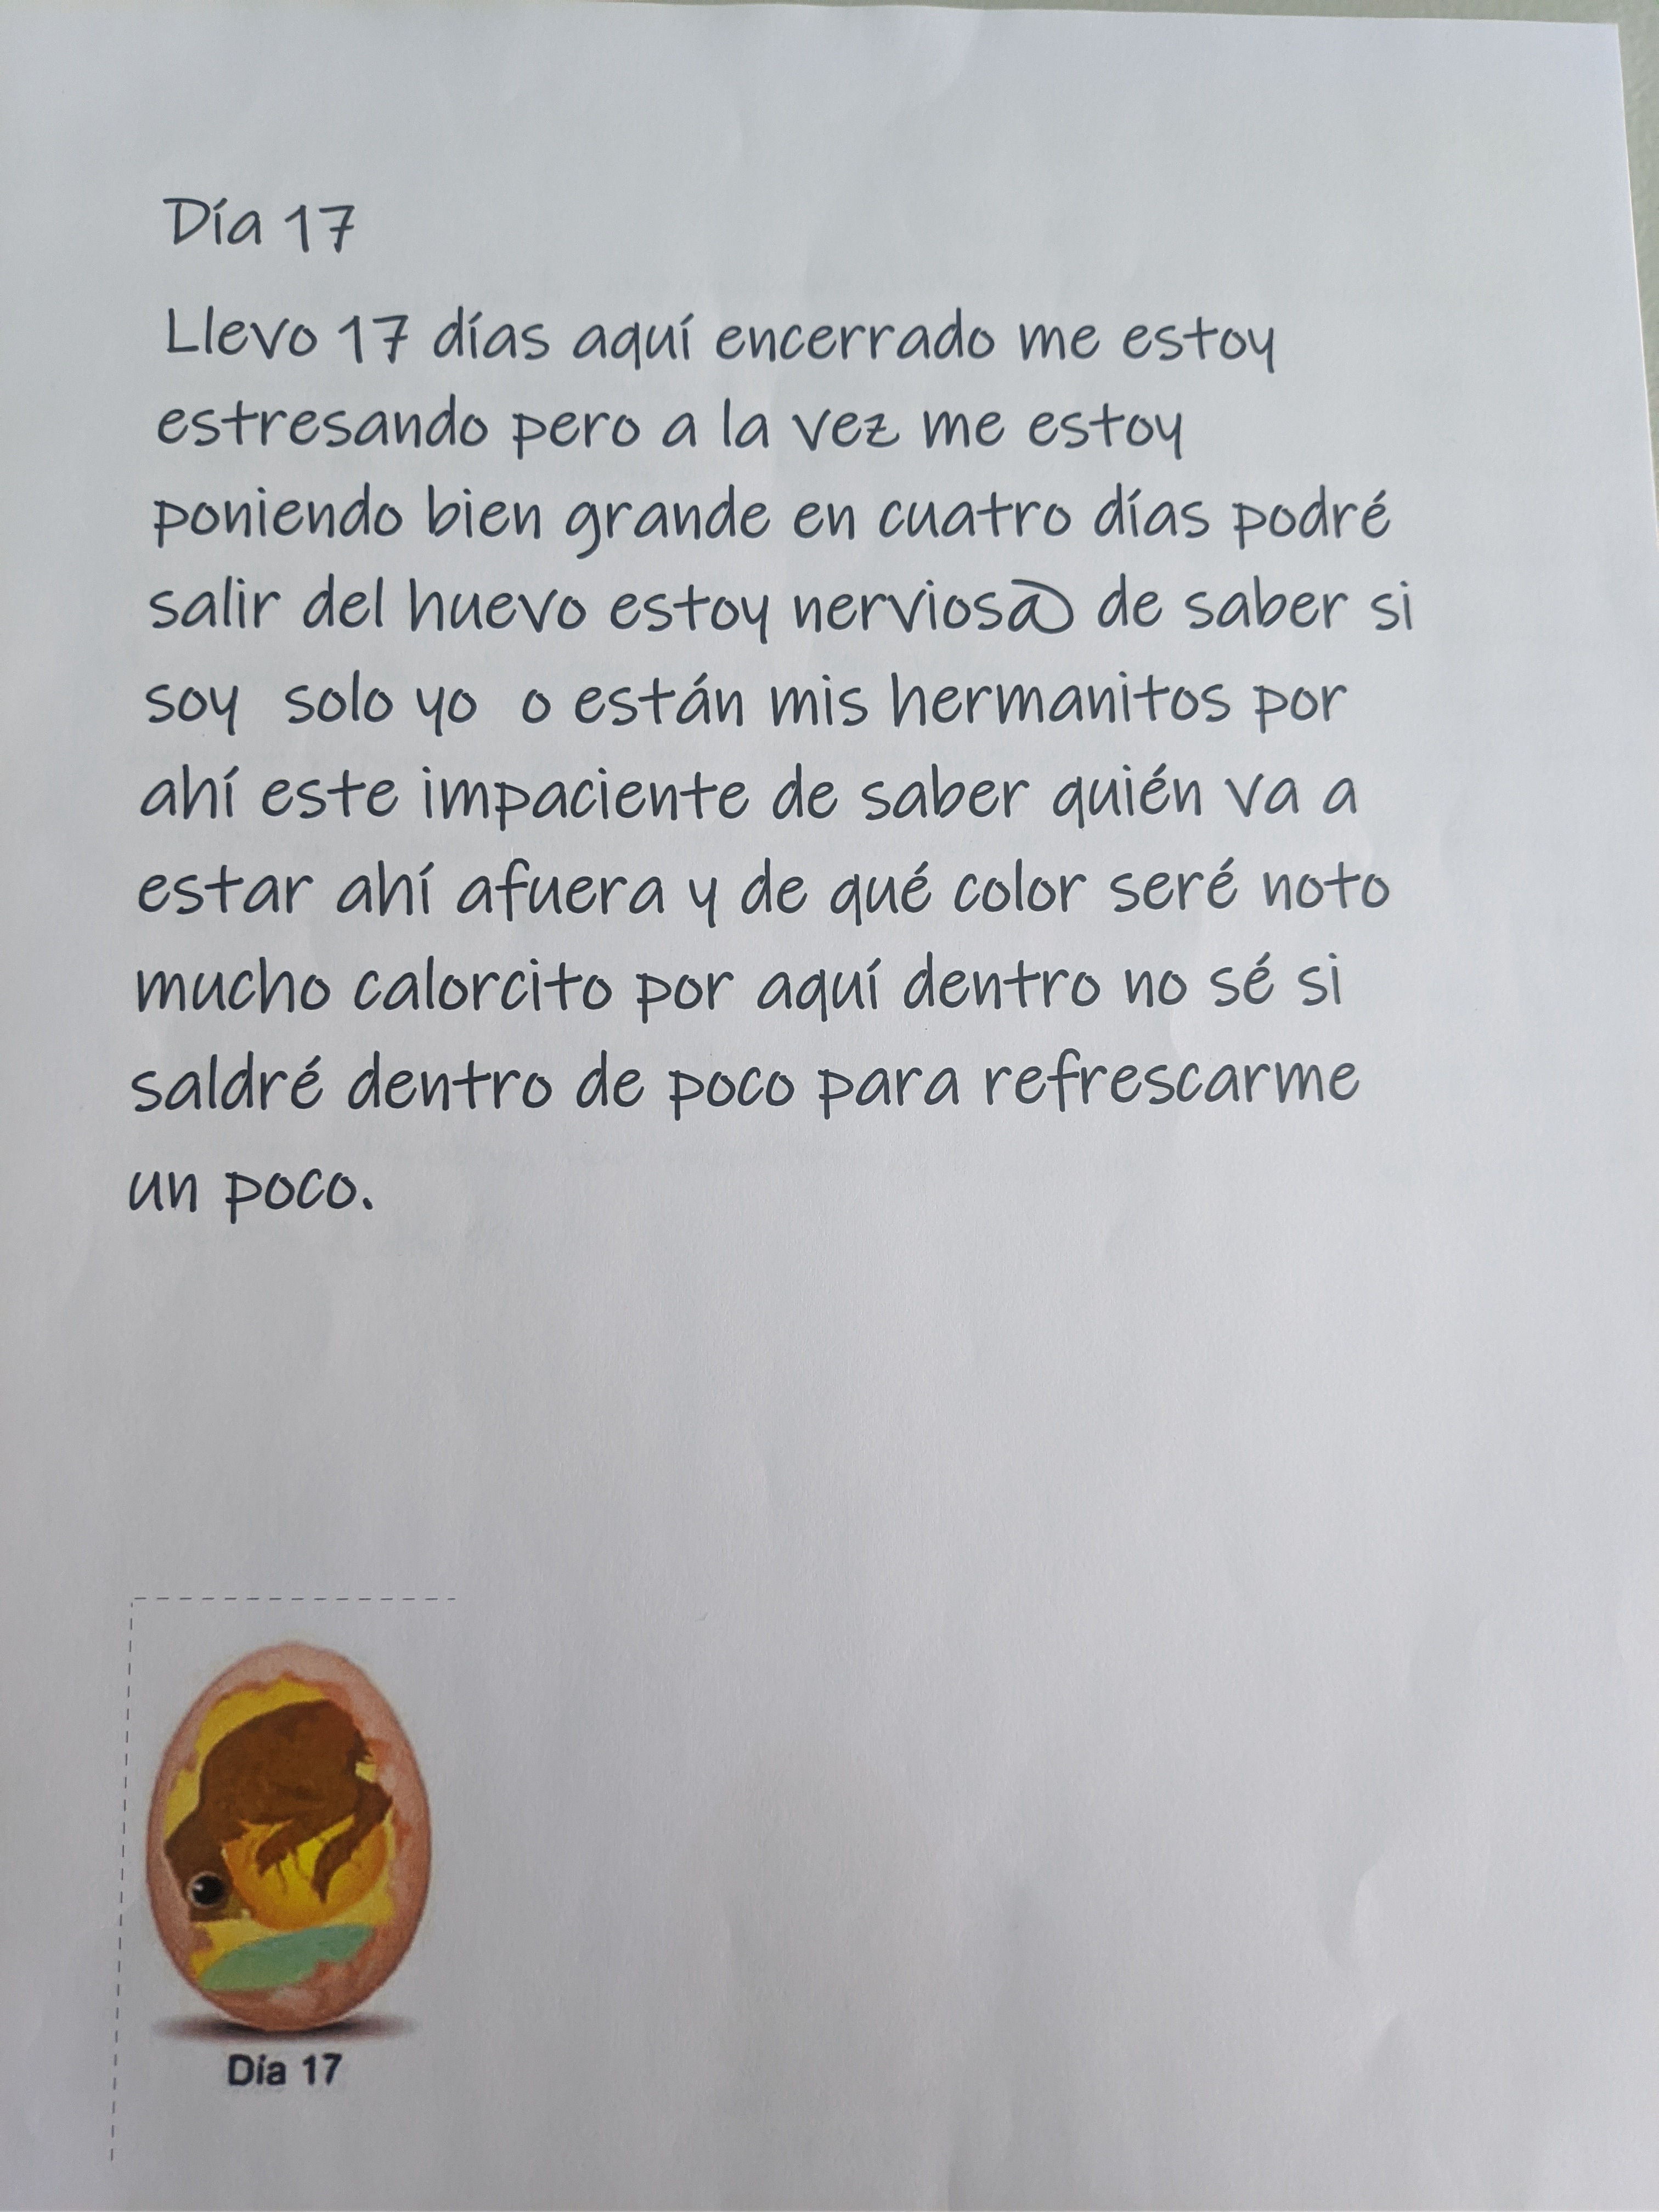 Día 17
Llevo 17 días aquí encerrado me estoy
estresando pero a la vez me estoy
poniendo bien grande en cuatro días podré
salir del huevo estoy nervios@ de saber si
soy solo yo o están mis hermanitos por
ahí este impaciente de saber quién va a
estar ahí afuera y de qué color seré noto
mucho calorcito por aquí dentro no sé si
saldré dentro de poco para refrescarme
un poco.
Día 17